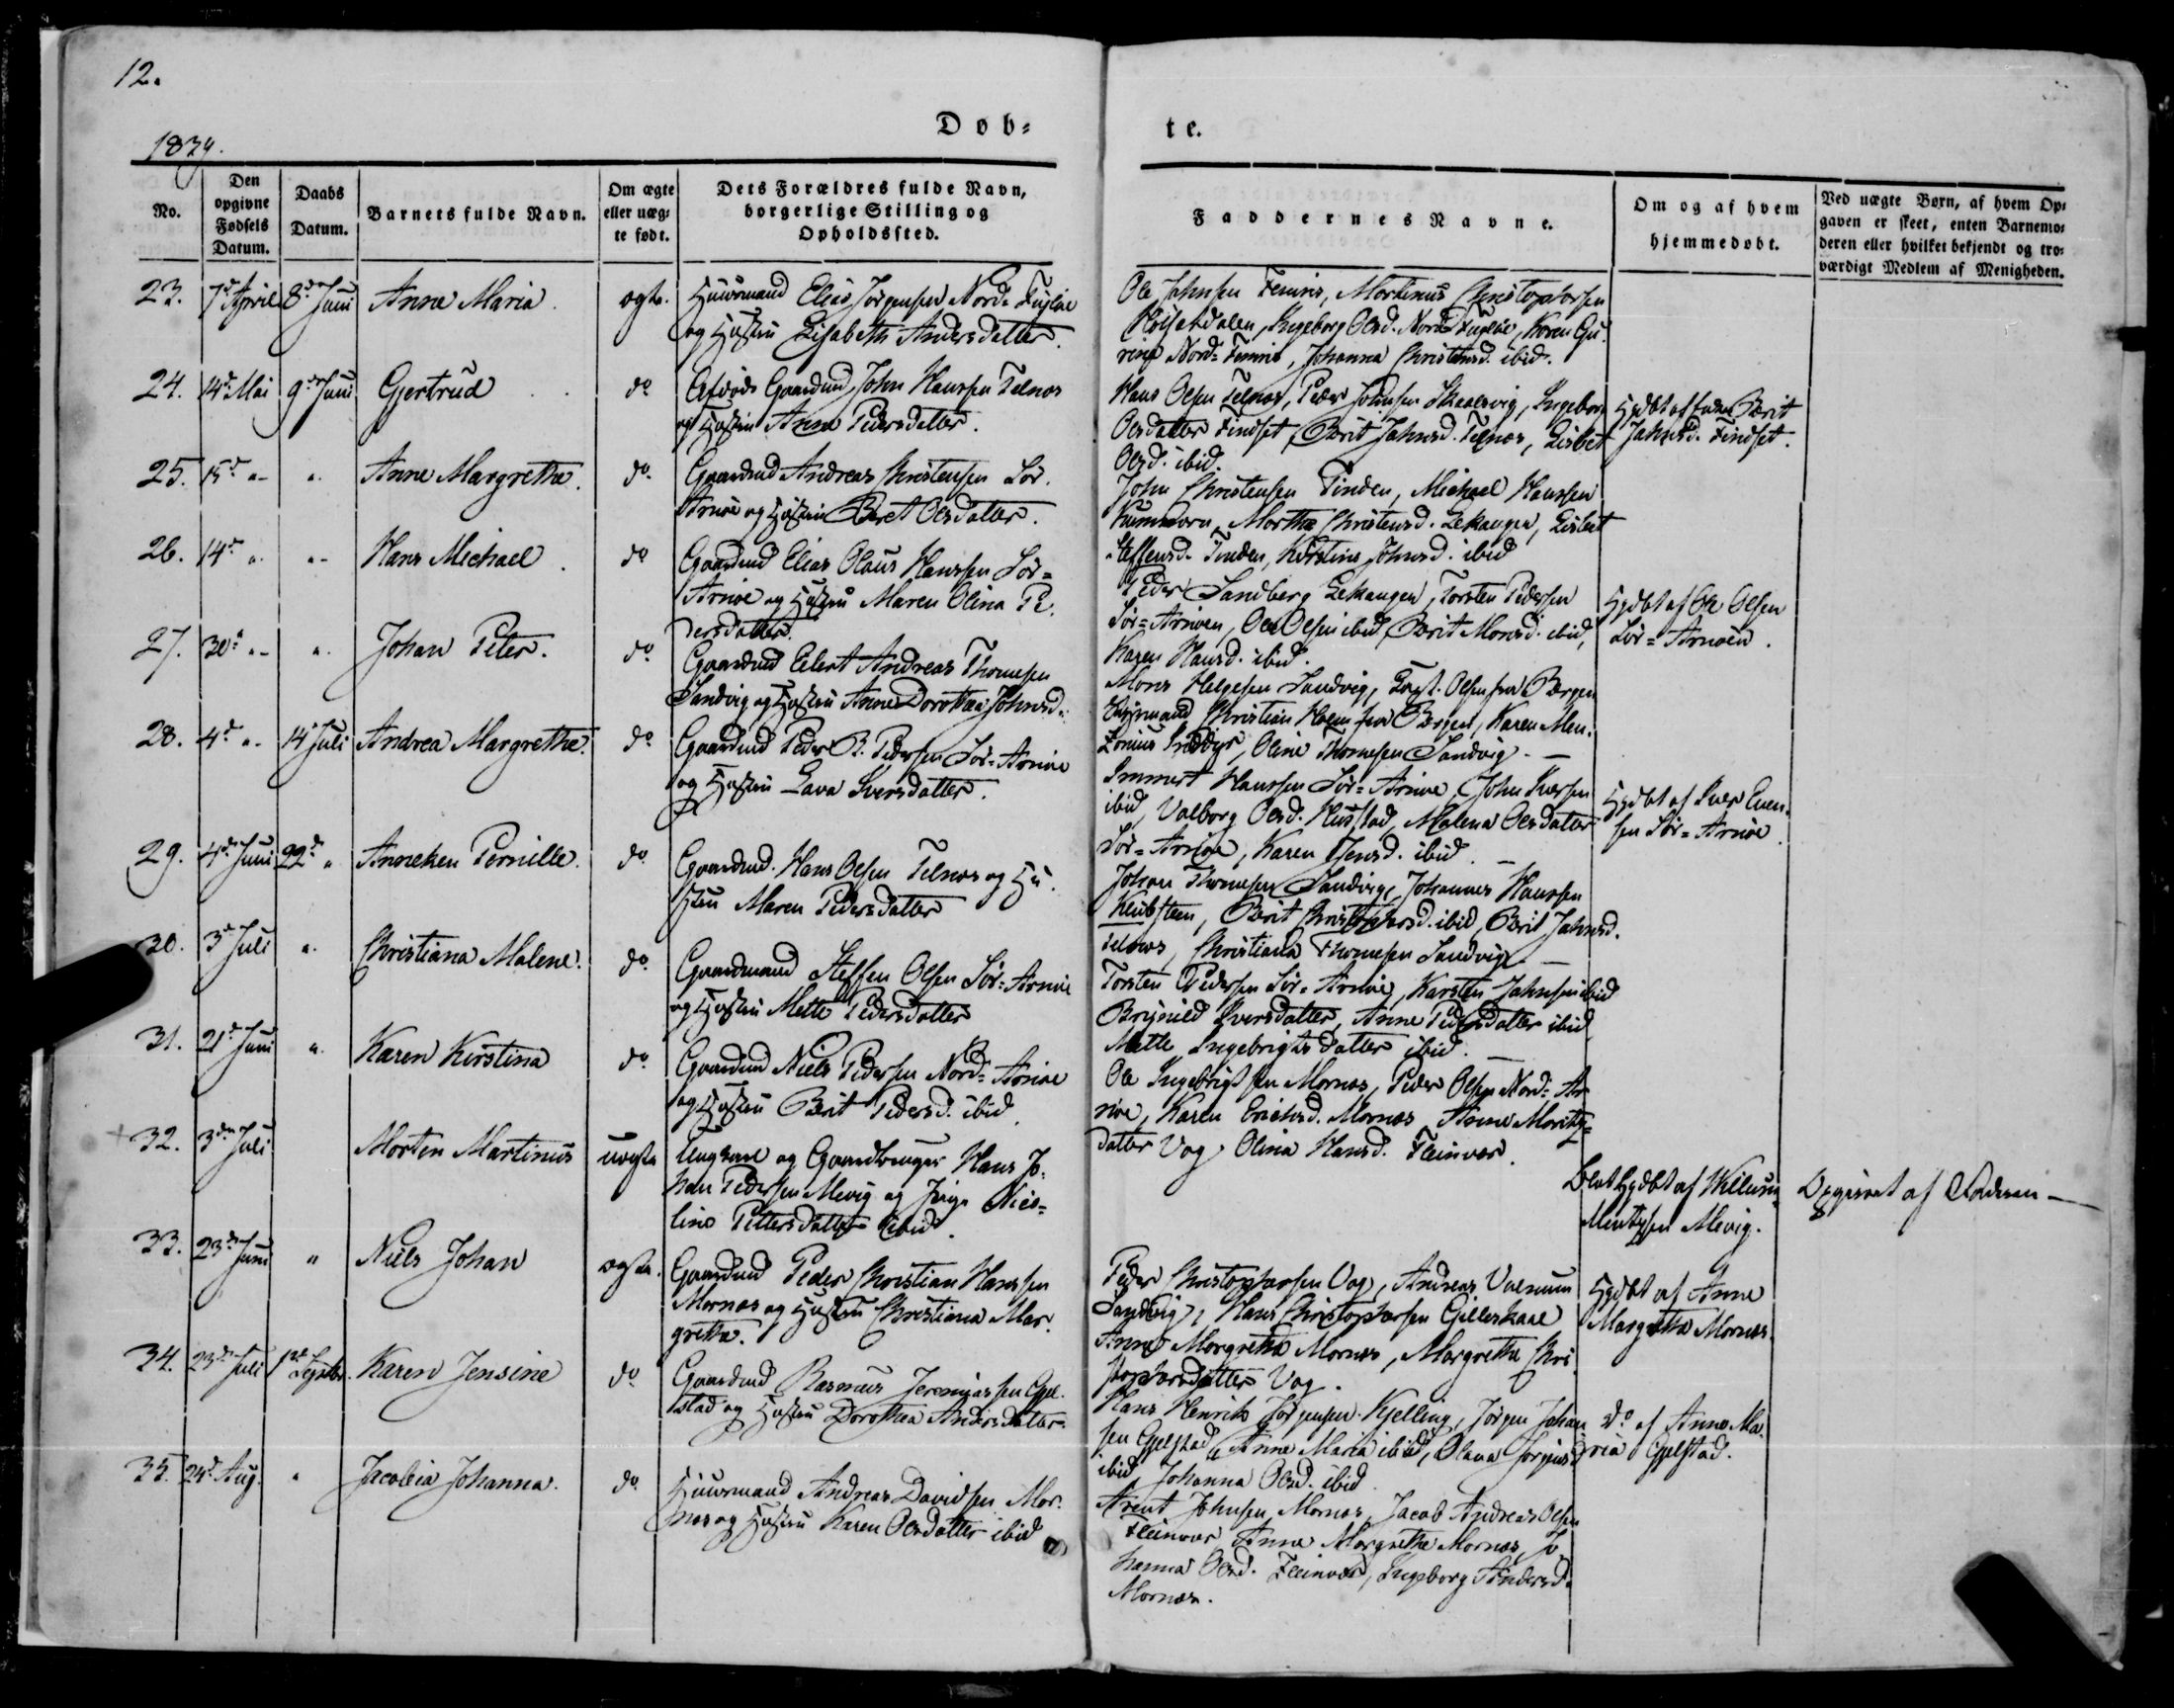 12.
Døb-
te.
1839.
No.
Den
opgivne
Fødsels
Datum.
Daabs
Datum.
Barnets fulde Navn.
Om ægte
eller uæg-
te født.
Dets Forældres fulde Navn,
borgerlige Stilling og
Opholdssted.
Faddernes Navne.
Om og af hvem
hjemmedøbt.
Ved uægte Børn, af hvem Op-
gaven er skeet, enten Barnemo-
deren eller hvilket bekjendt og tro-
værdigt Medlem af Menigheden.
23. 7d April 8d Juni Anna Maria. ægte. Huusmand Elias Jørgensen Nord-Fugløe
og Hustru Elisabeth Andersdatter.
Ole Johnsen Femris, Martinus Christophersen
Ingeborg Olsd. Nord Fugløe, Karen
Nord-Femris, Johanna Christensd. ibid.
24. 14d Mai 9d Juni Gjertrud do Afdøde Gaardmd John Hanssen Telnæs
og Hustru Anne Pedersdatter.
Hans Olsen Telnæs, Peder Johnsen Skaalsvig, Ingeborg
Olsdatter Findset, Berit Johnsd. Telnæs, Lisbet
Olsd. ibid.
Hjdbt af Berit
Johnsd. Findset.
25. 15d " " Anne Margretha. do Gaardmd Andreas Christensen Sør-
Arnøe og Hustru Beret Olsdatter.
John Christensen Tinden, Michael Hanssen
Martha Christensd. Lekangen, Lisbet
Steffensd. Tinden, Kirstine Johnsd. ibid
26. 14d " " Hans Michael. do Gaardmd Elias Olaus Hanssen Sør-
Arnøe og Hustru Maren Olina Pe-
dersdatter.
Peder Sandberg Lekangen, Torsten Pedersen
Sør-Arnøen, Ole Olsen ibid, Berit Monsd. ibid,
Karen Hansd. ibid.
Hjdbt af Ole Olsen
Sør-Arnøen.
27. 30d " " Johan Peter. do Gaardmd Eilert Andreas Thomesen
Sandvig og Hustru Anne Dorothea Johnsd.
Mons Helgesen Sandvig, Olsen fra Bergen
Christian Holm fra Bergen, Karen
Oline Thomesen Sandvig. —
28. 4d " 14d Juli Andrea Margrethe. do Gaardmd Peder B. Pedersen Sør-Arnøe
og Hustru Lava Iversdatter.
Hanssen Sør-Arnøe, John Iversen
ibid, Valborg Olsd. Husstad, Malena Olsdatter
Sør-Arnøe, Karen Jensd. ibid. —
Hjdbt af Iver Even-
sen Sør-Arnøe.
29. 4d Juni 22d " Anneken Pernille. do Gaardmd. Hans Olsen Telnæs og Hu-
stru Maren Pedersdatter
Johan Thomesen Sandvig, Johannes Hanssen
Berit Christophersd. ibid, Berit Johnsd.
Telnæs, Christiana Thomesen Sandvig. —
30. 3d Juli " Christiana Malene. do Gaardmand Steffen Olsen Sør-Arnøe
og Hustru Mette Pedersdatter
Torsten Pedersen Sør-Arnøe, Karsten Johnsen ibid
Brynild Iversdatter, Anne Pedersdatter ibid
Mette Ingebrigtsdatter ibid.
31. 21d Juni " Karen Kirstina do Gaardmd Niels Pedersen Nord-Arnøe
og Hustru Berit Pedersd. ibid.
Ole Ingebrigtsen Mornæs, Peder Olsen Nord-Ar-
nøe, Karen Erichsd. Mornæs Anne Moritz-
datter Vog, Olina Hansd. Fleinvær.
+ 32. 3d Juli Morten Martinus uægte Ungkarl og Gaardbruger Hans Jo-
han Pedersen Mevig og Pige Nico-
line Pettersdatter ibid.
Blot Hjdbt af Willum
Mentzsen Mevig.
Opgivet af Moderen —
33. 23d Juni " Niels Johan ægte. Gaardmd Peder Christian Hanssen
Mornæs og Hustru Christiana Mar-
gretha.
Peder Christophersen Vog, Andreas
Sandvig, Hans Christophersen Gilleskaal
Anna Margretha Mornæs, Margretha Chri-
stophersdatter Vog.
Hjdbt af Anne
Margretha Mornæs.
34. 23d Juli 1st Septbr. Karen Jensine do Gaardmd Rasmus Jeremiassen Gjel-
stad og Hustru Dorothea Andersdatter.
Hans Henrik Jørgensen Kjelling, Jørgen Johan-
sen Gjelstad, Anne Maria ibid, Olava Jørgensd
ibid, Johanna Olsd. ibid.
do af Anne Ma-
ria Gjelstad.
35. 24d Aug. " Jacobia Johanna. do Huusmand Andreas Davidsen Mor-
næs og Hustru Karen Olsdatter ibid
Arent Johnsen Mornæs, Jacob Andreas Olsen
Fleinvær Anna Margretha Mornæs, Jo-
hanna Olsd. Fleinvær, Ingeborg Andersd.
Mornæs.